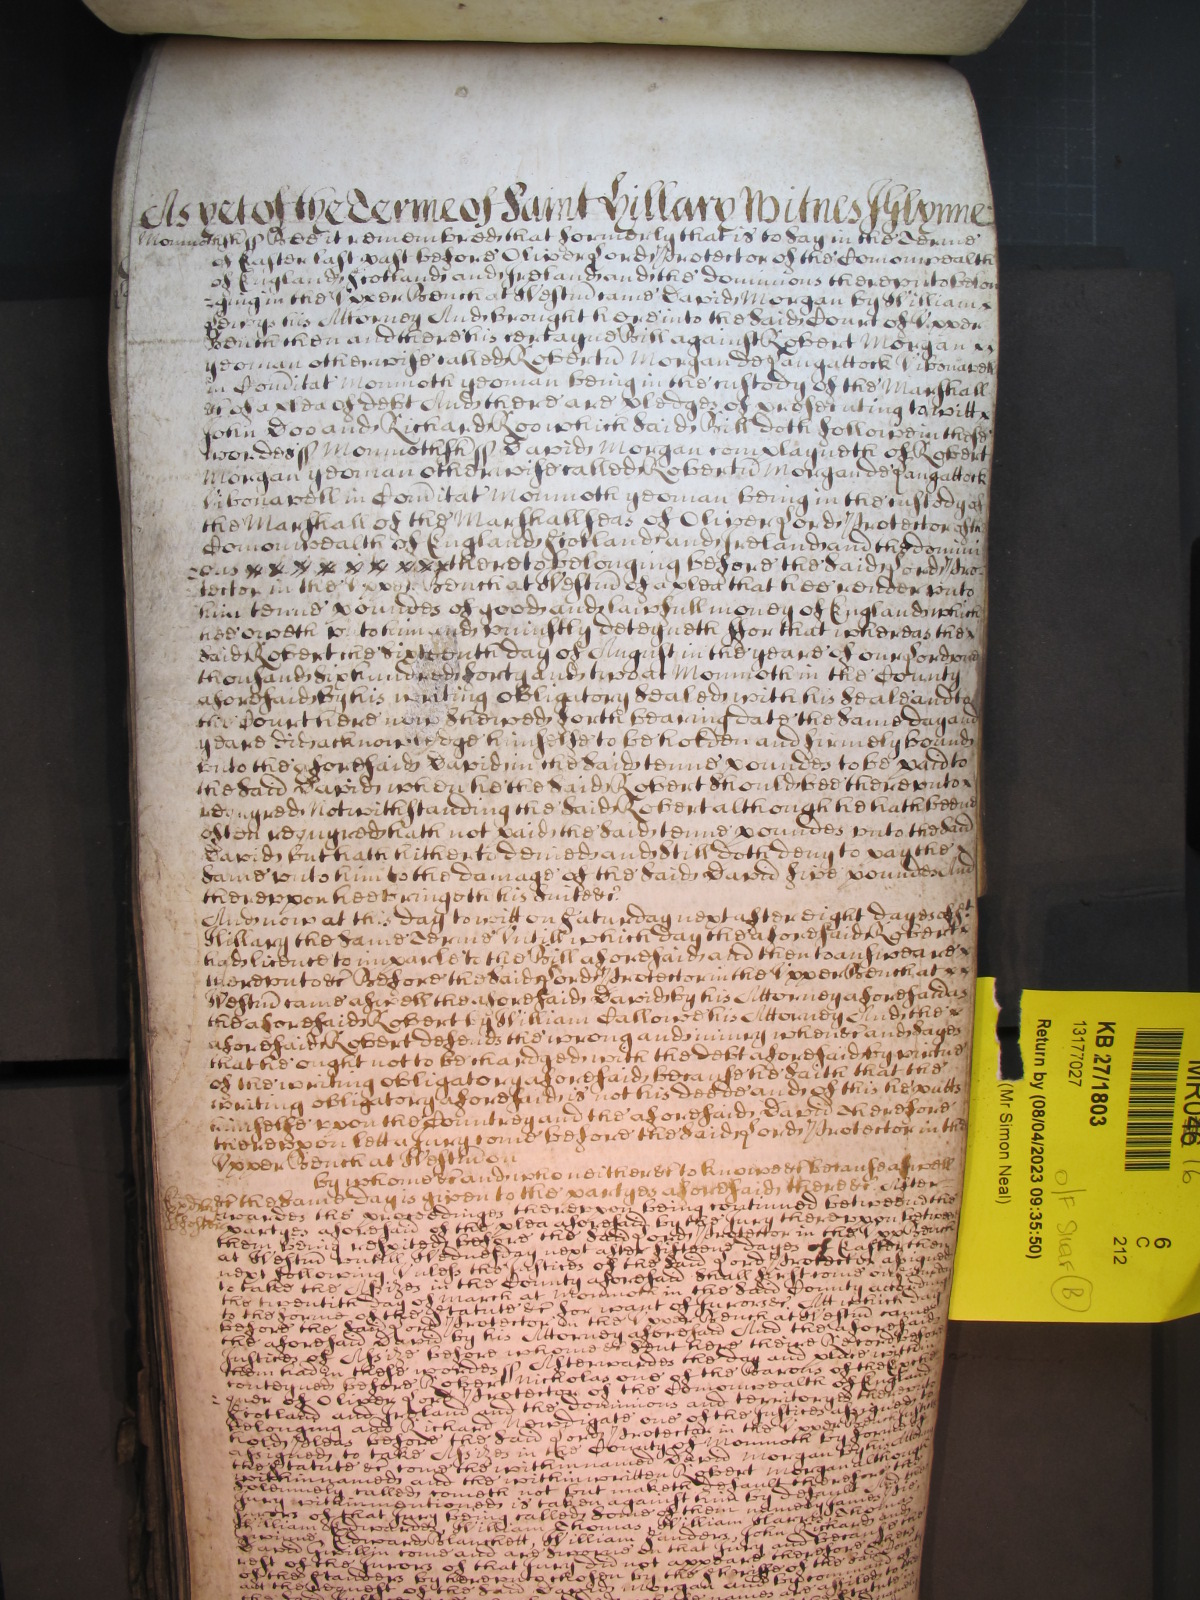 As yet of the Terme of Saint Hillary Witnes J Glynne
Monmothsh ss Bee it remembred that formerly that is to say in the Terme
of Easter last past before Oliver Lord Protector of the Comonwealth
of England Scotland and Ireland and the dominions thereunto belon
ging in the Upper Bench at Westm came David Morgan by William
his Attorney And brought here into the said Court of Upper
Bench then and there his certayne Bill against Robert Morgan
yeoman otherwise called Robertu Morgan de Langattock Vibonavell
in Comitat Monmoth yeoman being in the custody of the Marshall
&c of a plea of debt And there are pledges of prosecuting to witt
John Doo and Richard Roo which said Bill doth follow in these
wordes ss Monmothsh ss David Morgan complayneth of Robert
Morgan yeoman otherwise called Robertu Morgan de Langattock
Vibonavell in Comitat Monmoth yeoman being in the custody of
the Marshall of the Marshallseas of Oliver Lord Protector of the
Comonwealth of England Scotland and Ireland and the domini
ons thereto belonging before the said Lord Pro
tector in the Upper Bench at Westm of a plea that hee render unto
him tenne poundes of good and lawfull money of England which
hee oweth unto him and uniustly deteyneth For that whereas the
said Robert the sixteenth day of August in the yeare of our Lord one
thousand six hundred forty and two at Monmoth in the County
aforesaid by his writing obligatory sealed with his seale and to
the Court here now shewed forth bearing date the same day and
yeare did acknowledge himselfe to be holden and firmely bound
unto the aforesaid David in the said tenne poundes to be paid to
the said David when he the said Robert should bee thereunto
required Notwithstanding the said Robert although he hath beene
often required hath not paid the said tenne poundes unto the said
David but hath hitherto denied and still doth deny to pay the
same unto him to the damage of the said David five poundes And
thereupon hee bringeth his suite &c
And now at this day to witt on Saturday next after eight dayes of St
Hillary the same Terme Untill which day the aforesaid Robert
had licence to imparle to the Bill aforesaid and then to answeare
thereunto &c Before the said Lord Protector in the Upper Bench at
Westm came aswell the aforesaid David by his Attorney aforesaid as
the aforesaid Robert by William Callowe his Attorney And the
aforesaid Robert defends the wrong and iniury when &c and sayes
that he ought not to be chardged with the debt aforesaid by vertue
of the writing obligatory aforesaid because he saith that the
writing obligatory aforesaid is not his deede and of this he putts
himselfe upon the Countrey and the aforesaid David Therefore
thereupon lett a Jury come before the said Lord Protector in the
Upper Bench at Westm on
by whome &c and who neither &c to knowe &c because aswell
&c the same day is given to the partyes aforesaid there &c After
wardes the proceedinges thereupon being continued betweene the
partyes aforesaid of the plea aforesaid by the Jury thereupon betweene
them being respited before the said Lord Protector in the Upper Bench
at Westm untill Wednesday next after fifteene dayes of Easter then
next following Unless the Justices of the said Lord Protector assigned
to take the Assizes in the County aforesaid shall first come on
the twentith day of March at Monmoth in the said County according
to the forme of the Statute &c for want of Jurors &c Att which day
before the said Lord Protector in the Upper Bench at Westm came
the aforesaid David by his Attorney aforesaid And the aforesaid
Justices of Assize before whome &c sent here theire Record before
them had in these wordes ss Afterwardes the day and place within
conteyned before Robert Nicholas one of the Barons of the Exche
quer of Oliver Lord Protector of the Comonwealth of England
Scotland and Ireland and the dominions and territoryes thereunto
belonging and Richard Newdigate one of the Justices assigned to
hold pleas before the said Lord Protector in the Upper Bench
assigned to take Assizes in the County of Monmoth by forme of
the Statute &c come the withinnamed David Morgan by his Attorney
withinnamed and the withinwritten Robert Morgan although
solemnely called cometh not but maketh default therefore the
Jury withinmentioned is taken against him by default And the
Jurors of that Jury being called some of them namely James
William Edwardes William Thomas William Harris Thomas
Edward Blanchett William Sanders John Richard and
David come and are sworne on that Jury and because the
rest of the Jurors of that Jury did not appeare therefore others
of the standers by hereunto chosen by the Sheriffe of the said County
att the request of the said David Morgan and by command of
MR046
KB 27/1803
13177027
Return by (08/04/2023 09:35:50)
(Mr Simon Neal)
6
C
212
O/F Shelf (B)
16